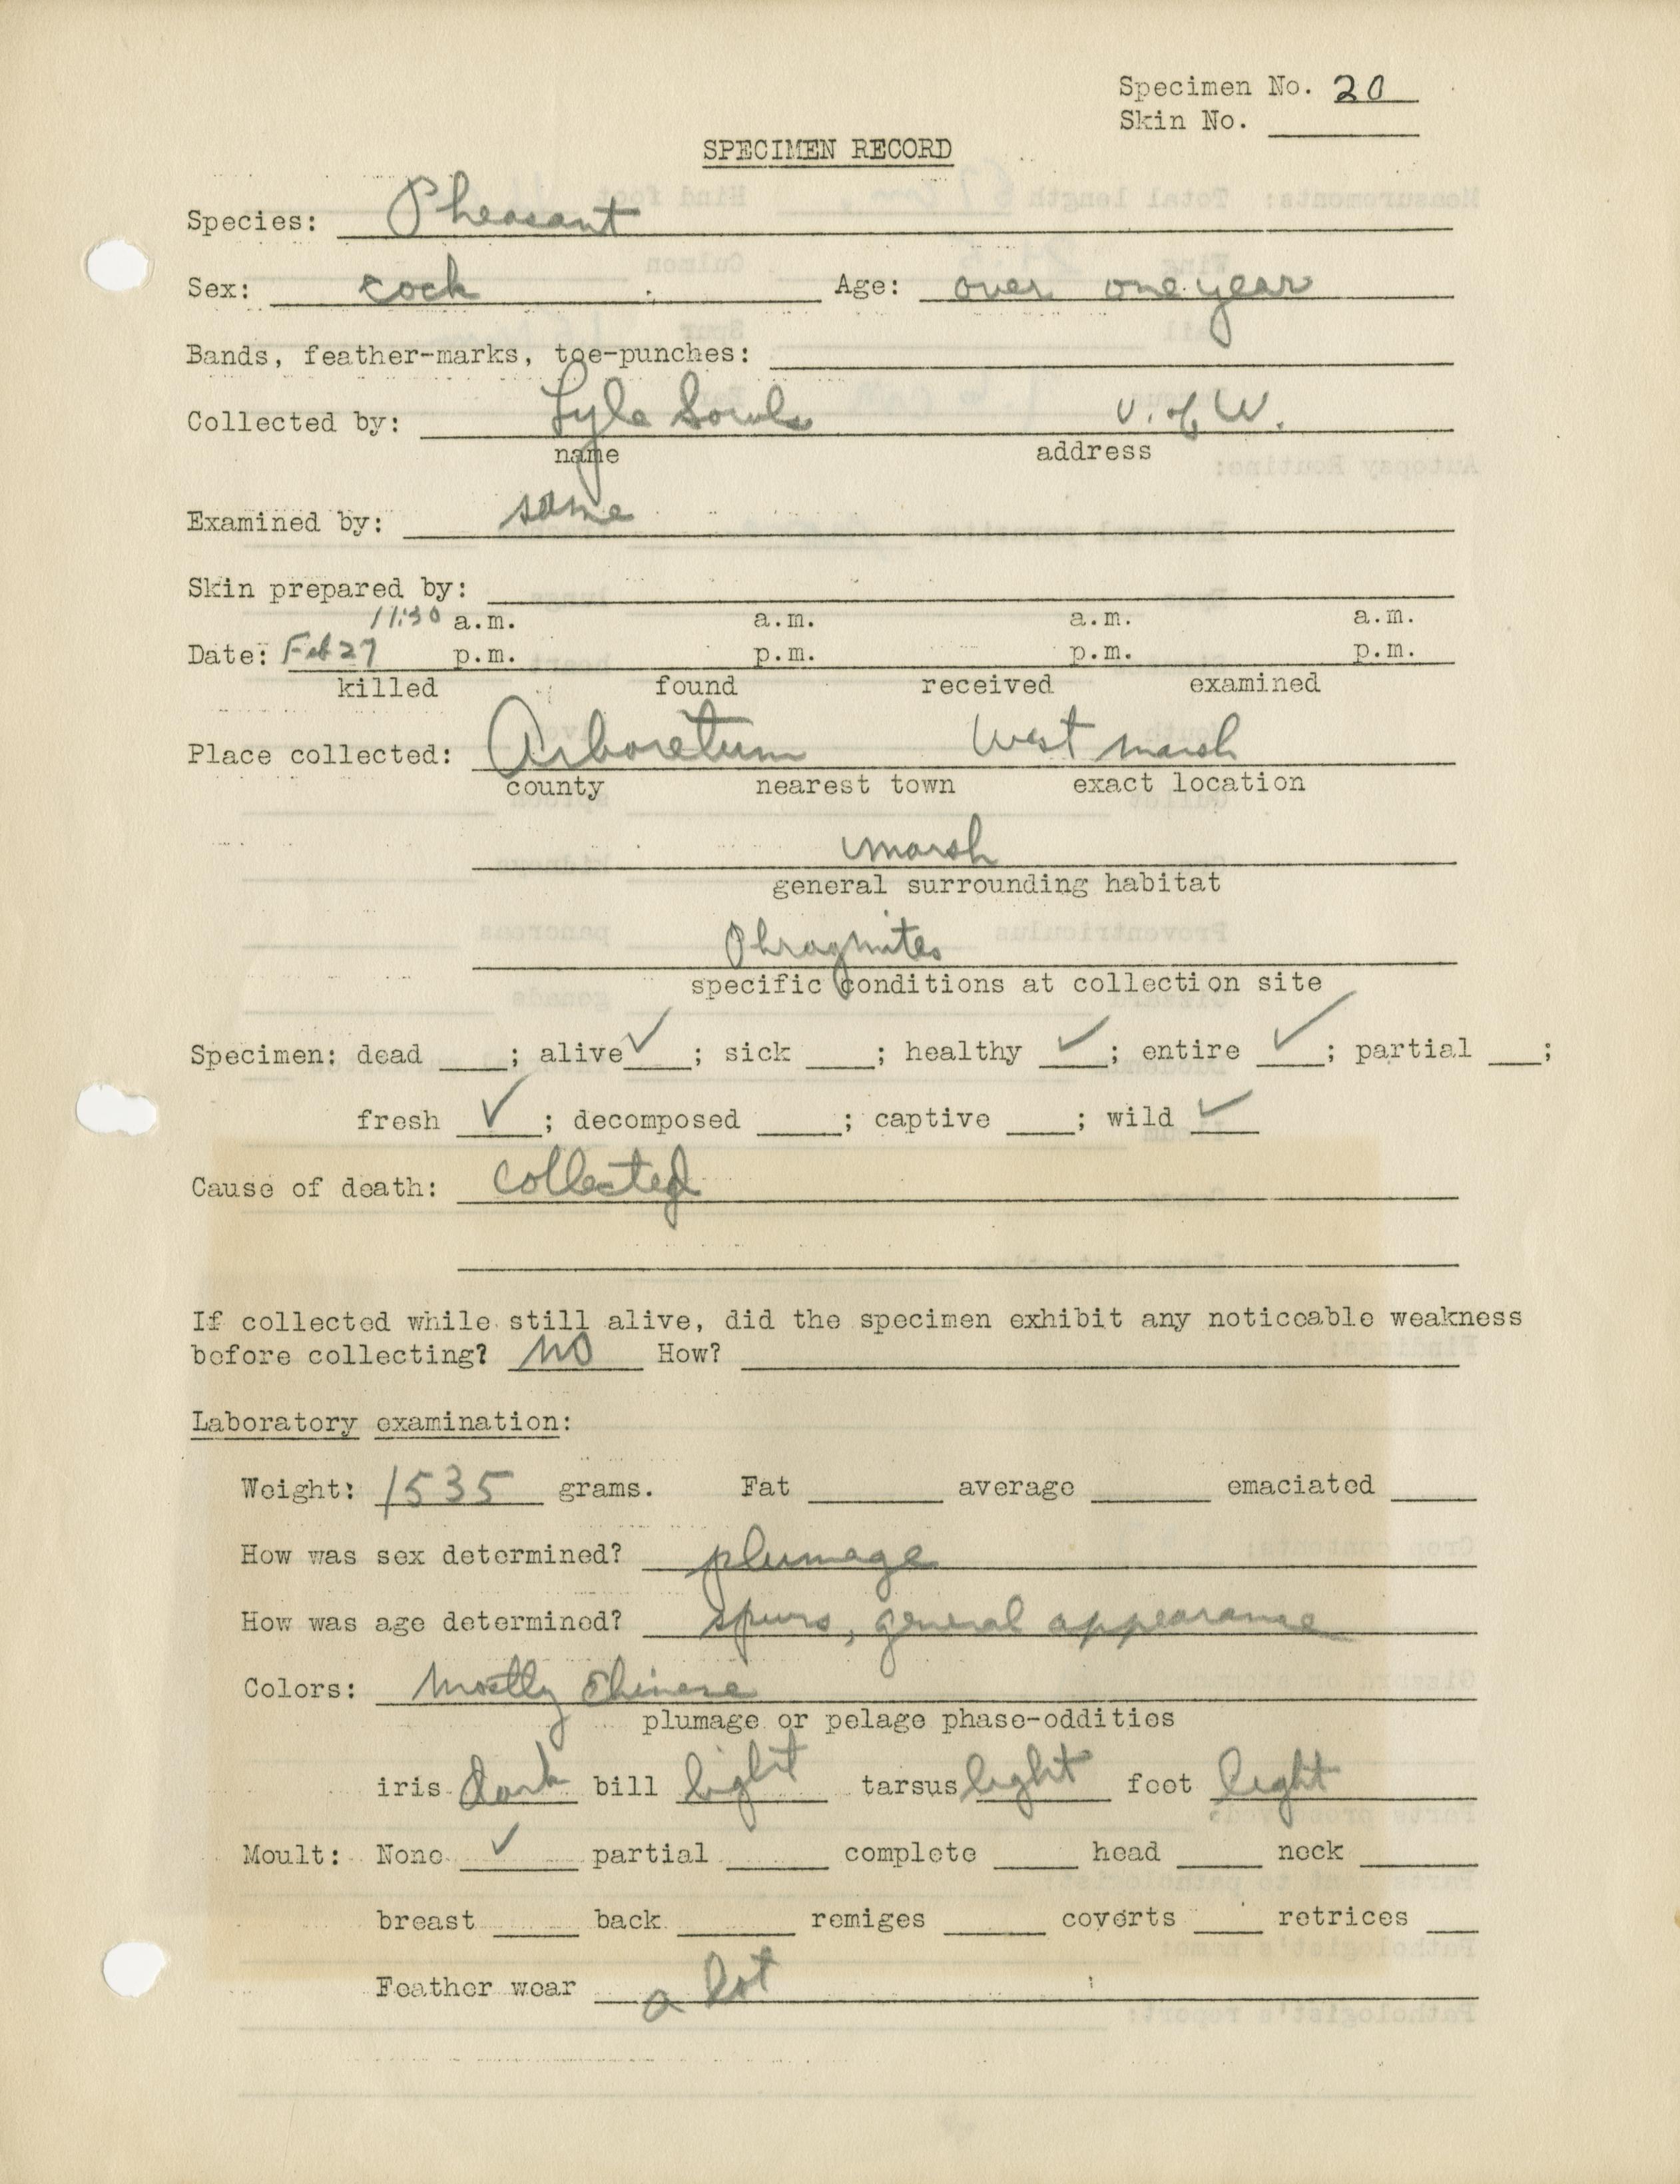 Specimen No. 20
Skin No.
SPECIMEN RECORD
Species: Pheasant
Sex: cock Age: over one year
Bands, feather-marks, toe-punches:
Collected by: Lyle Sowls U. of W.
name address
Examined by: same
Skin prepared by:
11:30 a.m. a.m. a.m. a.m.
Date: Feb 27 p.m. p.m. p.m. p.m.
killed found received examined
Place collected: Arboretum West marsh
county nearest town exact location
marsh
general surrounding habitat
Phragmites
specific conditions at collection site
Specimen: dead ____; alive ✓; sick ____; healthy ✓; entire ✓; partial ___;
fresh ✓; decomposed ____; captive ____; wild ✓
Cause of death: collected
If collected while still alive, did the specimen exhibit any noticeable weakness
before collecting? no How?
Laboratory examination:
Weight: 1535 grams. Fat average emaciated
How was sex determined? plumage
How was age determined? spurs, general appearance
Colors: Mostly Chinese
plumage or pelage phase-oddities
iris dark bill light tarsus light foot light
Moult: None ✓ partial complete head neck
breast back remiges coverts retrices
Feather wear a lot